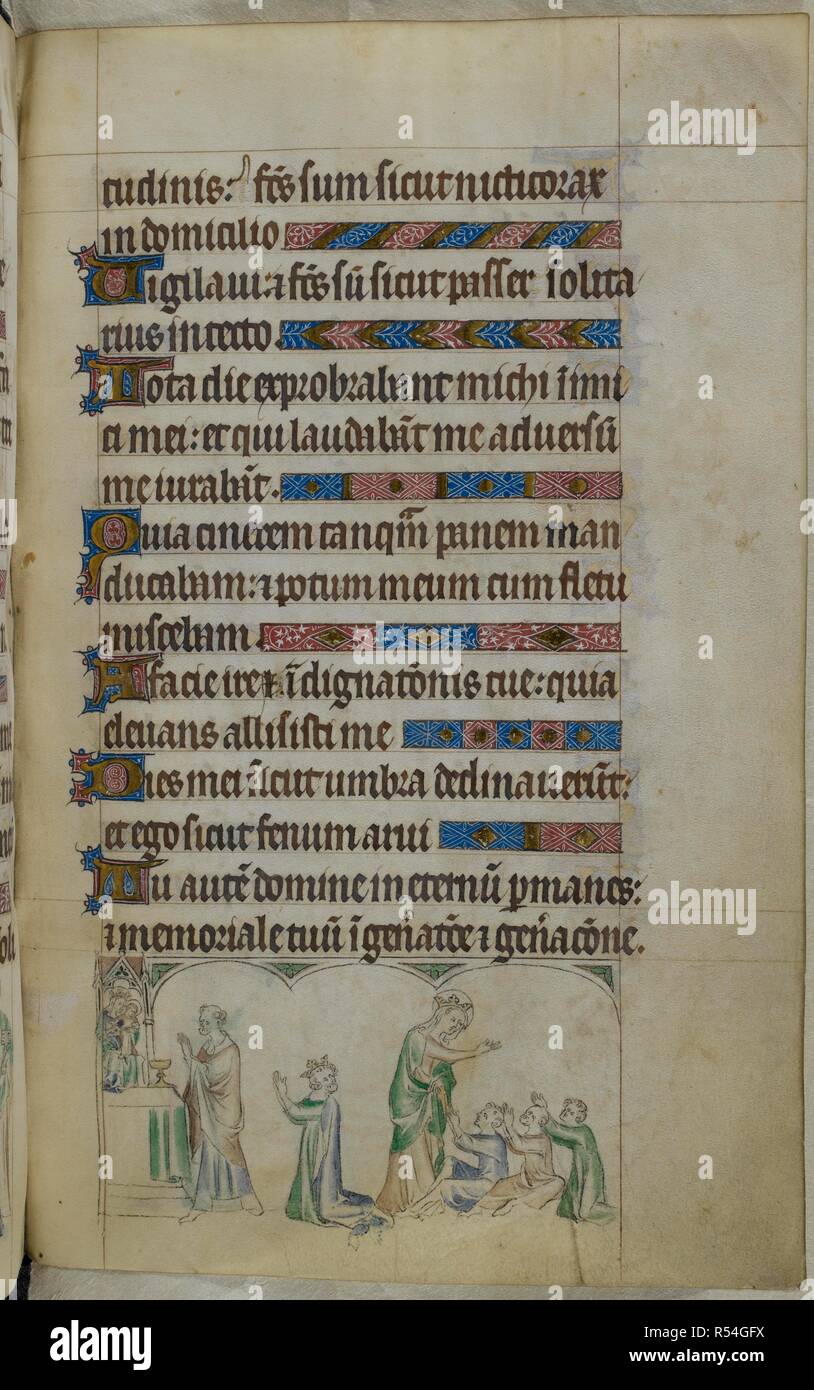 tudinis: fc̄s sum sicut nicticorax
in domicilio
Vigilaui: ⁊ fc̄s sū sicut passer solita
rius in tecto.
Tota die exprobrabant michi inimi
ci mei: et qui laudabāt me aduersū
me iurabāt.
Quia cinerem tanq̄m panem man
ducabam: ⁊ potum meum cum fletu
miscebam
A facie ire ⁊ īdignatōnis tue: quia
eleuans allisisti me
Dies mei sicut umbra declinauerūt:
et ego sicut fenum arui
Tu autē domine in eternū pmanes:
⁊ memoriale tuū ī gen̄atōe ⁊ gen̄acōne.
a alamy stock photo
alamy
Image ID: R54GFX
www.alamy.com